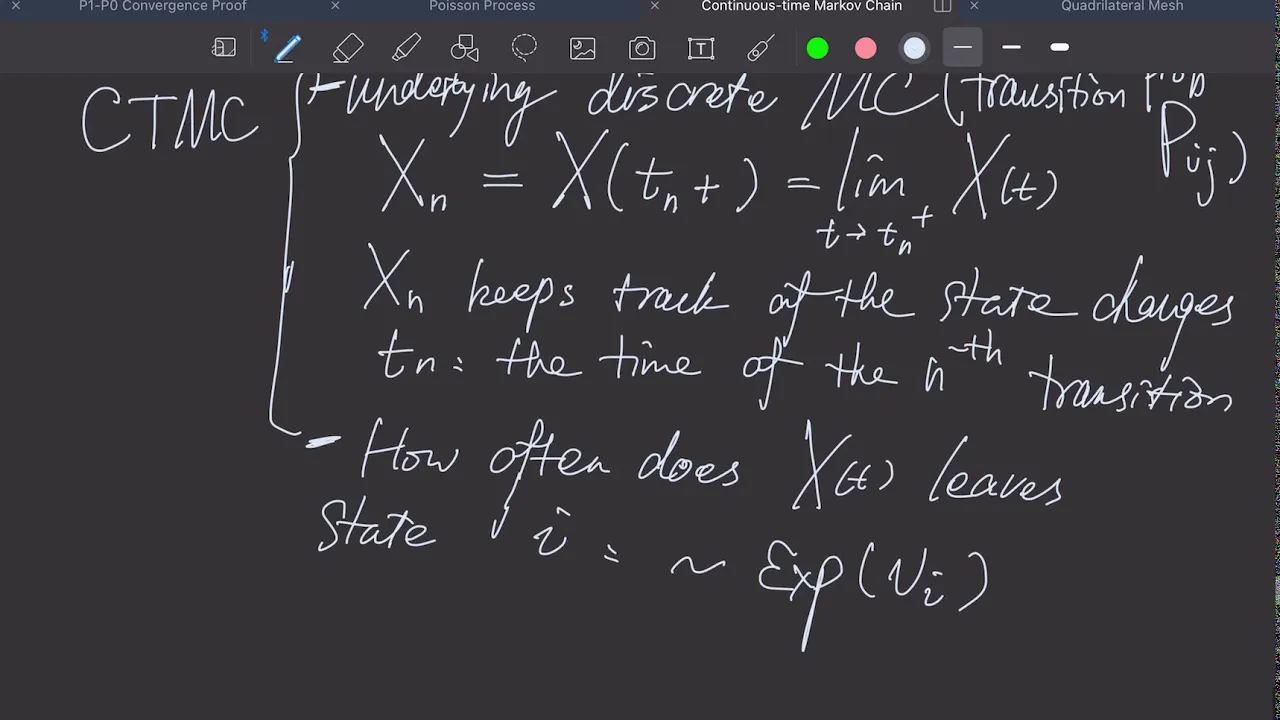 P1-P0 Convergence Proof
Poisson Process
Continuous-time Markov Chain
Quadrilateral Mesh
CTMC { - underlying discrete MC (transition prob
P_ij)
X_n = X(t_n+) = lim_{t→t_n^+} X(t)
X_n keeps track of the state changes
t_n: the time of the n^-th transition
- How often does X(t) leaves
state i : ~ Exp(ν_i)